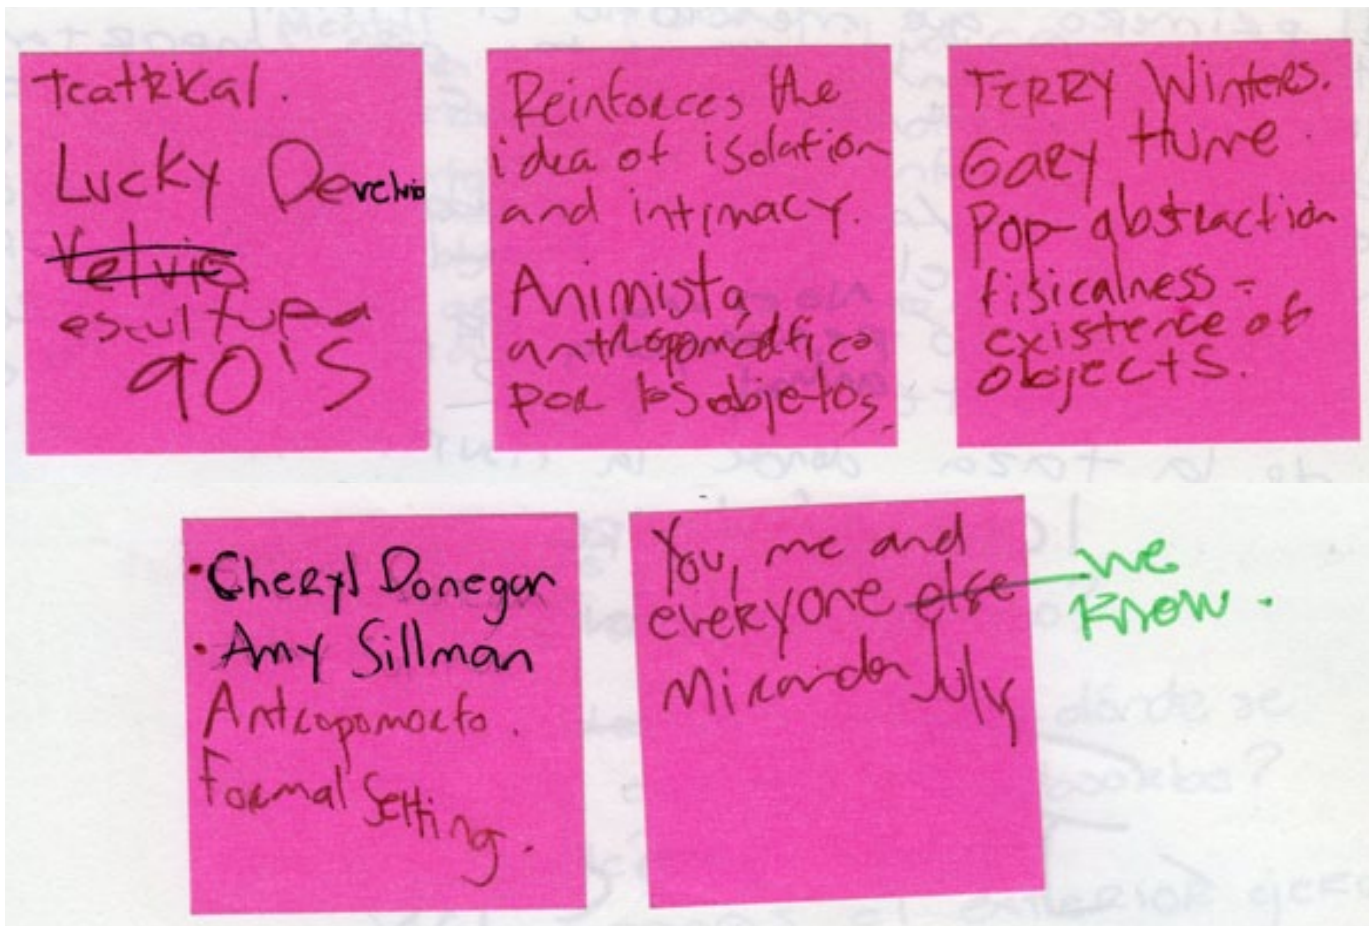 Teatrical.
Lucky De
Velvio
escultura
90'S
Reinforces the
idea of isolation
and intimacy.
Animista,
antropomórfico
por los objetos.
TERRY Winters.
Gary Hume.
Pop-abstraction
fisicalness =
existence of
objects.
• Cheryl Donegan
• Amy Sillman
Antropomorfo.
Formal Setting.
You, me and
everyone else we
know.
Miranda July